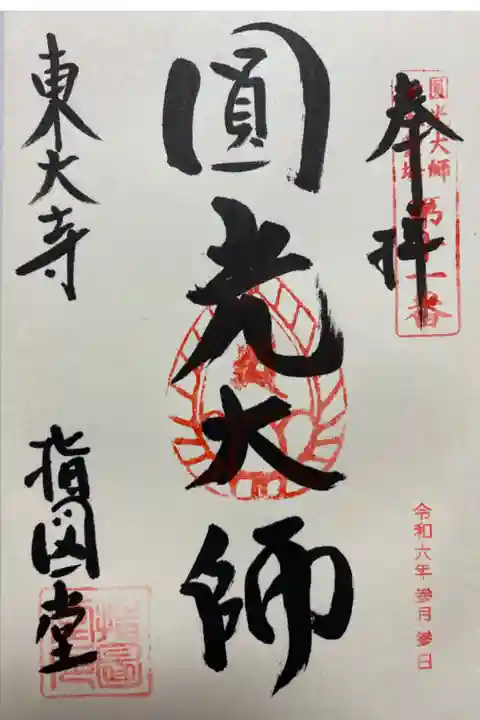 奉拝
圓光大師
第十一番
令和六年參月參日
圓光大師
東大寺
指図堂